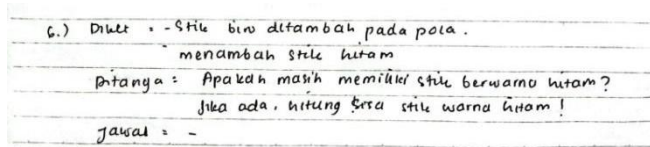 6.) Diket : - Stik biru ditambah pada pola.
- menambah stik hitam
Ditanya : Apakah masih memiliki stik berwarna hitam?
Jika ada, hitung sisa stik warna hitam!
Jawab : -